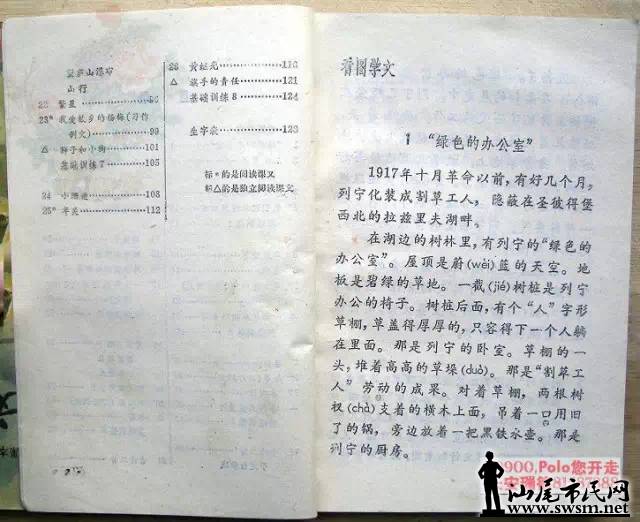 山行
22 繁星
23* 我爱故乡的杨梅(习作
例文) 99
△ 狮子和小狗 101
基础训练7 105
24 小珊迪 108
25* 半夹 112
26 黄继光 116
△ 旗手的责任 121
基础训练8 124
生字表 128
标*的是阅读课文
标△的是独立阅读课文
看图学文
1 “绿色的办公室”
1917年十月革命以前,有好几个月,
列宁化装成割草工人, 隐蔽在圣彼得堡
西北的拉兹里夫湖畔。
在湖边的树林里,有列宁的“绿色的
办公室”。屋顶是蔚(wèi)蓝的天空。地
板是碧绿的草地。一截(jié)树桩是列宁
办公的椅子。树桩后面,有个“人”字形
草棚,草盖得厚厚的,只容得下一个人躺
在里面。那是列宁的卧室。草棚的一
头,堆着高高的草垛(duò)。那是“割草工
人”劳动的成果。对着草棚, 两根树
杈(chà)支着的横木上面, 吊着一口用旧
了的锅, 旁边放着一把黑铁水壶。那是
列宁的厨房。
900,Polo您开走
汕尾市民网
www.swsm.net